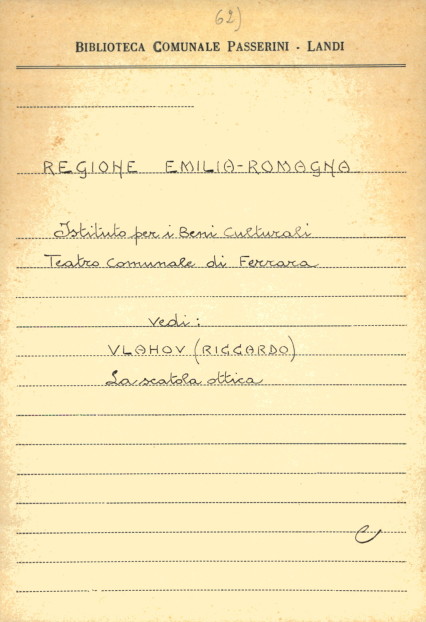 62)
BIBLIOTECA COMUNALE PASSERINI - LANDI
REGIONE EMILIA-ROMAGNA
Istituto per i Beni Culturali
Teatro Comunale di Ferrara
vedi:
VLAHOV (RICCARDO)
La scatola ottica
e